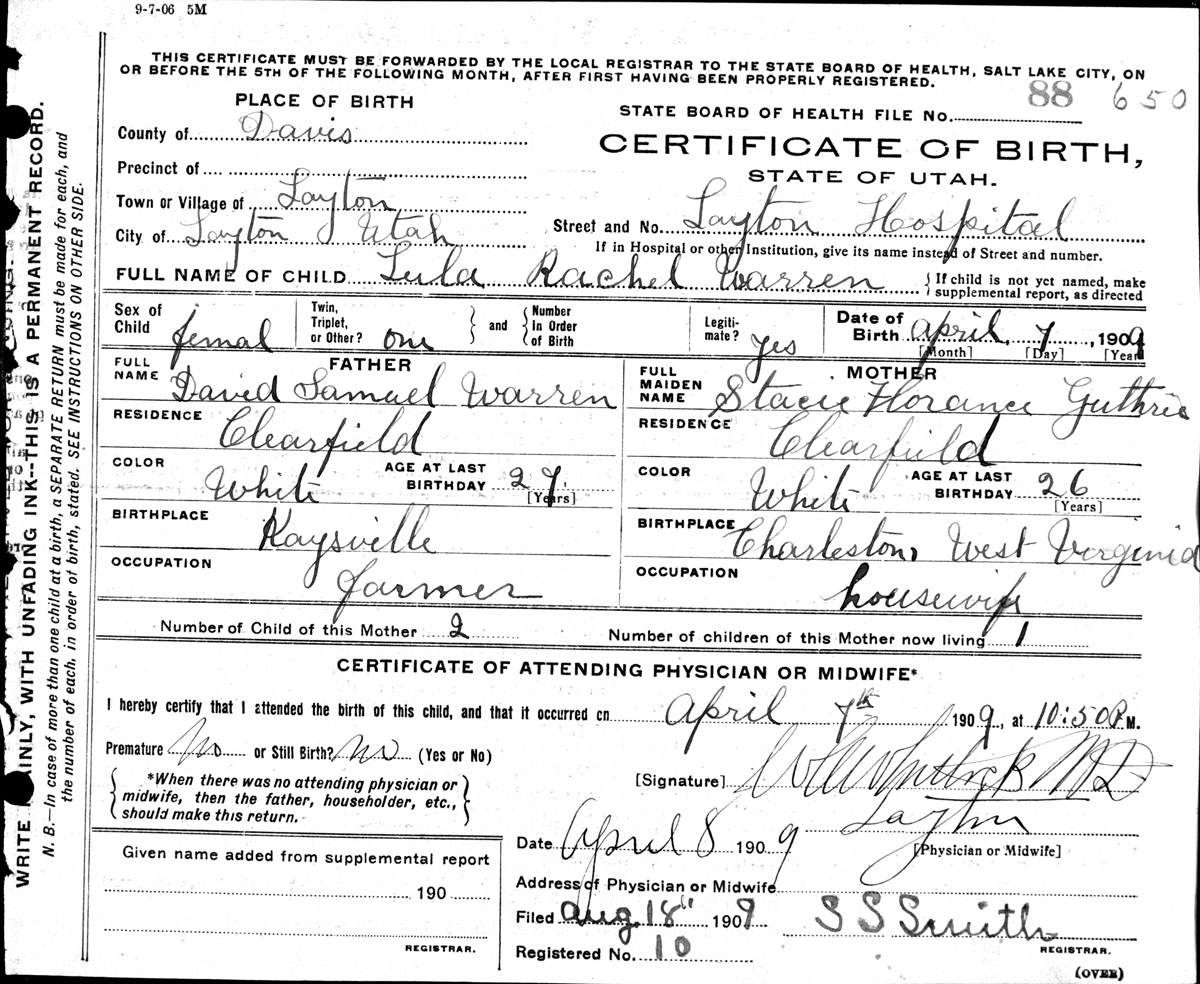 9-7-06 5M
THIS CERTIFICATE MUST BE FORWARDED BY THE LOCAL REGISTRAR TO THE STATE BOARD OF HEALTH, SALT LAKE CITY, ON
OR BEFORE THE 5TH OF THE FOLLOWING MONTH, AFTER FIRST HAVING BEEN PROPERLY REGISTERED.
88 650
PLACE OF BIRTH
STATE BOARD OF HEALTH FILE No.
County of Davis
CERTIFICATE OF BIRTH,
STATE OF UTAH.
Precinct of
Town or Village of Layton
Street and No. Layton Hospital
City of Layton Utah
If in Hospital or other Institution, give its name instead of Street and number.
FULL NAME OF CHILD Lula Rachel Warren
If child is not yet named, make
supplemental report, as directed
Sex of Child femal
Twin, Triplet, or Other? one
and Number in Order of Birth
Legiti-mate? yes
Date of Birth April 7, 1909
[Month] [Day] [Year]
FATHER
FULL NAME David Samuel Warren
RESIDENCE Clearfield
COLOR White AGE AT LAST BIRTHDAY 27
[Years]
BIRTHPLACE Kaysville
OCCUPATION farmer
MOTHER
FULL MAIDEN NAME Stacie Florance Guthrie
RESIDENCE Clearfield
COLOR White AGE AT LAST BIRTHDAY 26
[Years]
BIRTHPLACE Charleston, West Virginia
OCCUPATION housewife
Number of Child of this Mother 2 Number of children of this Mother now living 1
CERTIFICATE OF ATTENDING PHYSICIAN OR MIDWIFE*
I hereby certify that I attended the birth of this child, and that it occurred on April 7th 1909, at 10:50 P.M.
Premature No or Still Birth? No (Yes or No)
*When there was no attending physician or
midwife, then the father, householder, etc.,
should make this return.
[Signature] MD
Layton
[Physician or Midwife]
Date April 8 1909
Address of Physician or Midwife
Filed Aug. 18" 1909 S S Smith
REGISTRAR.
Registered No. 10
(OVER)
Given name added from supplemental report
190
REGISTRAR.
WRITE PLAINLY, WITH UNFADING INK--THIS IS A PERMANENT RECORD.
N. B.—In case of more than one child at a birth, a SEPARATE RETURN must be made for each, and
the number of each, in order of birth, stated. SEE INSTRUCTIONS ON OTHER SIDE.